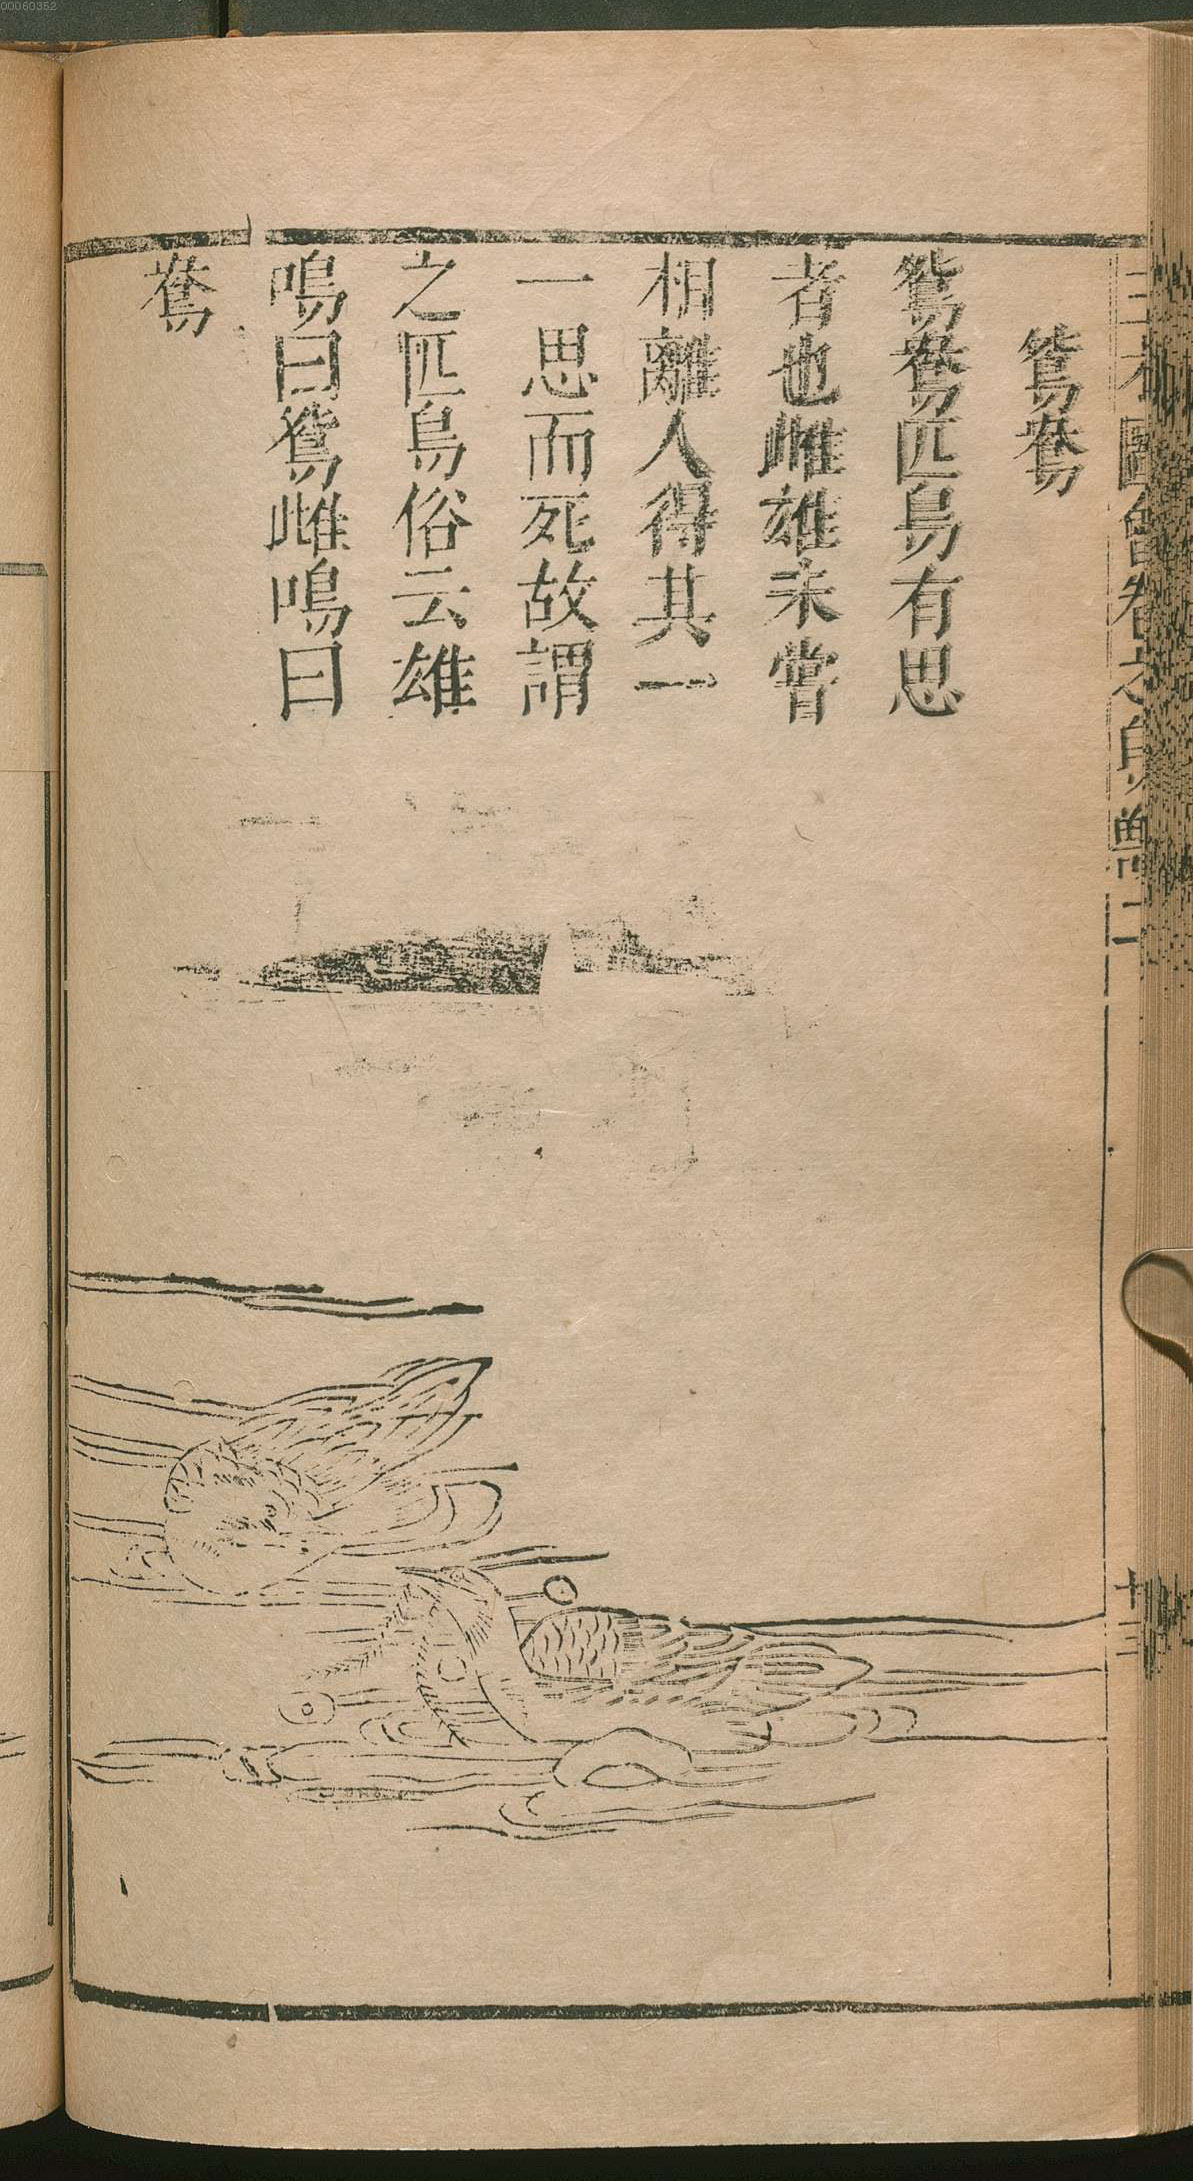 鴛鴦
鴛鴦匹鳥有思
者也雌雄未嘗
相離人得其一
一思而死故謂
之匹鳥俗云雄
鳴曰鴛雌鳴曰
鴦
圖會卷之鳥獸二
十三
00060352